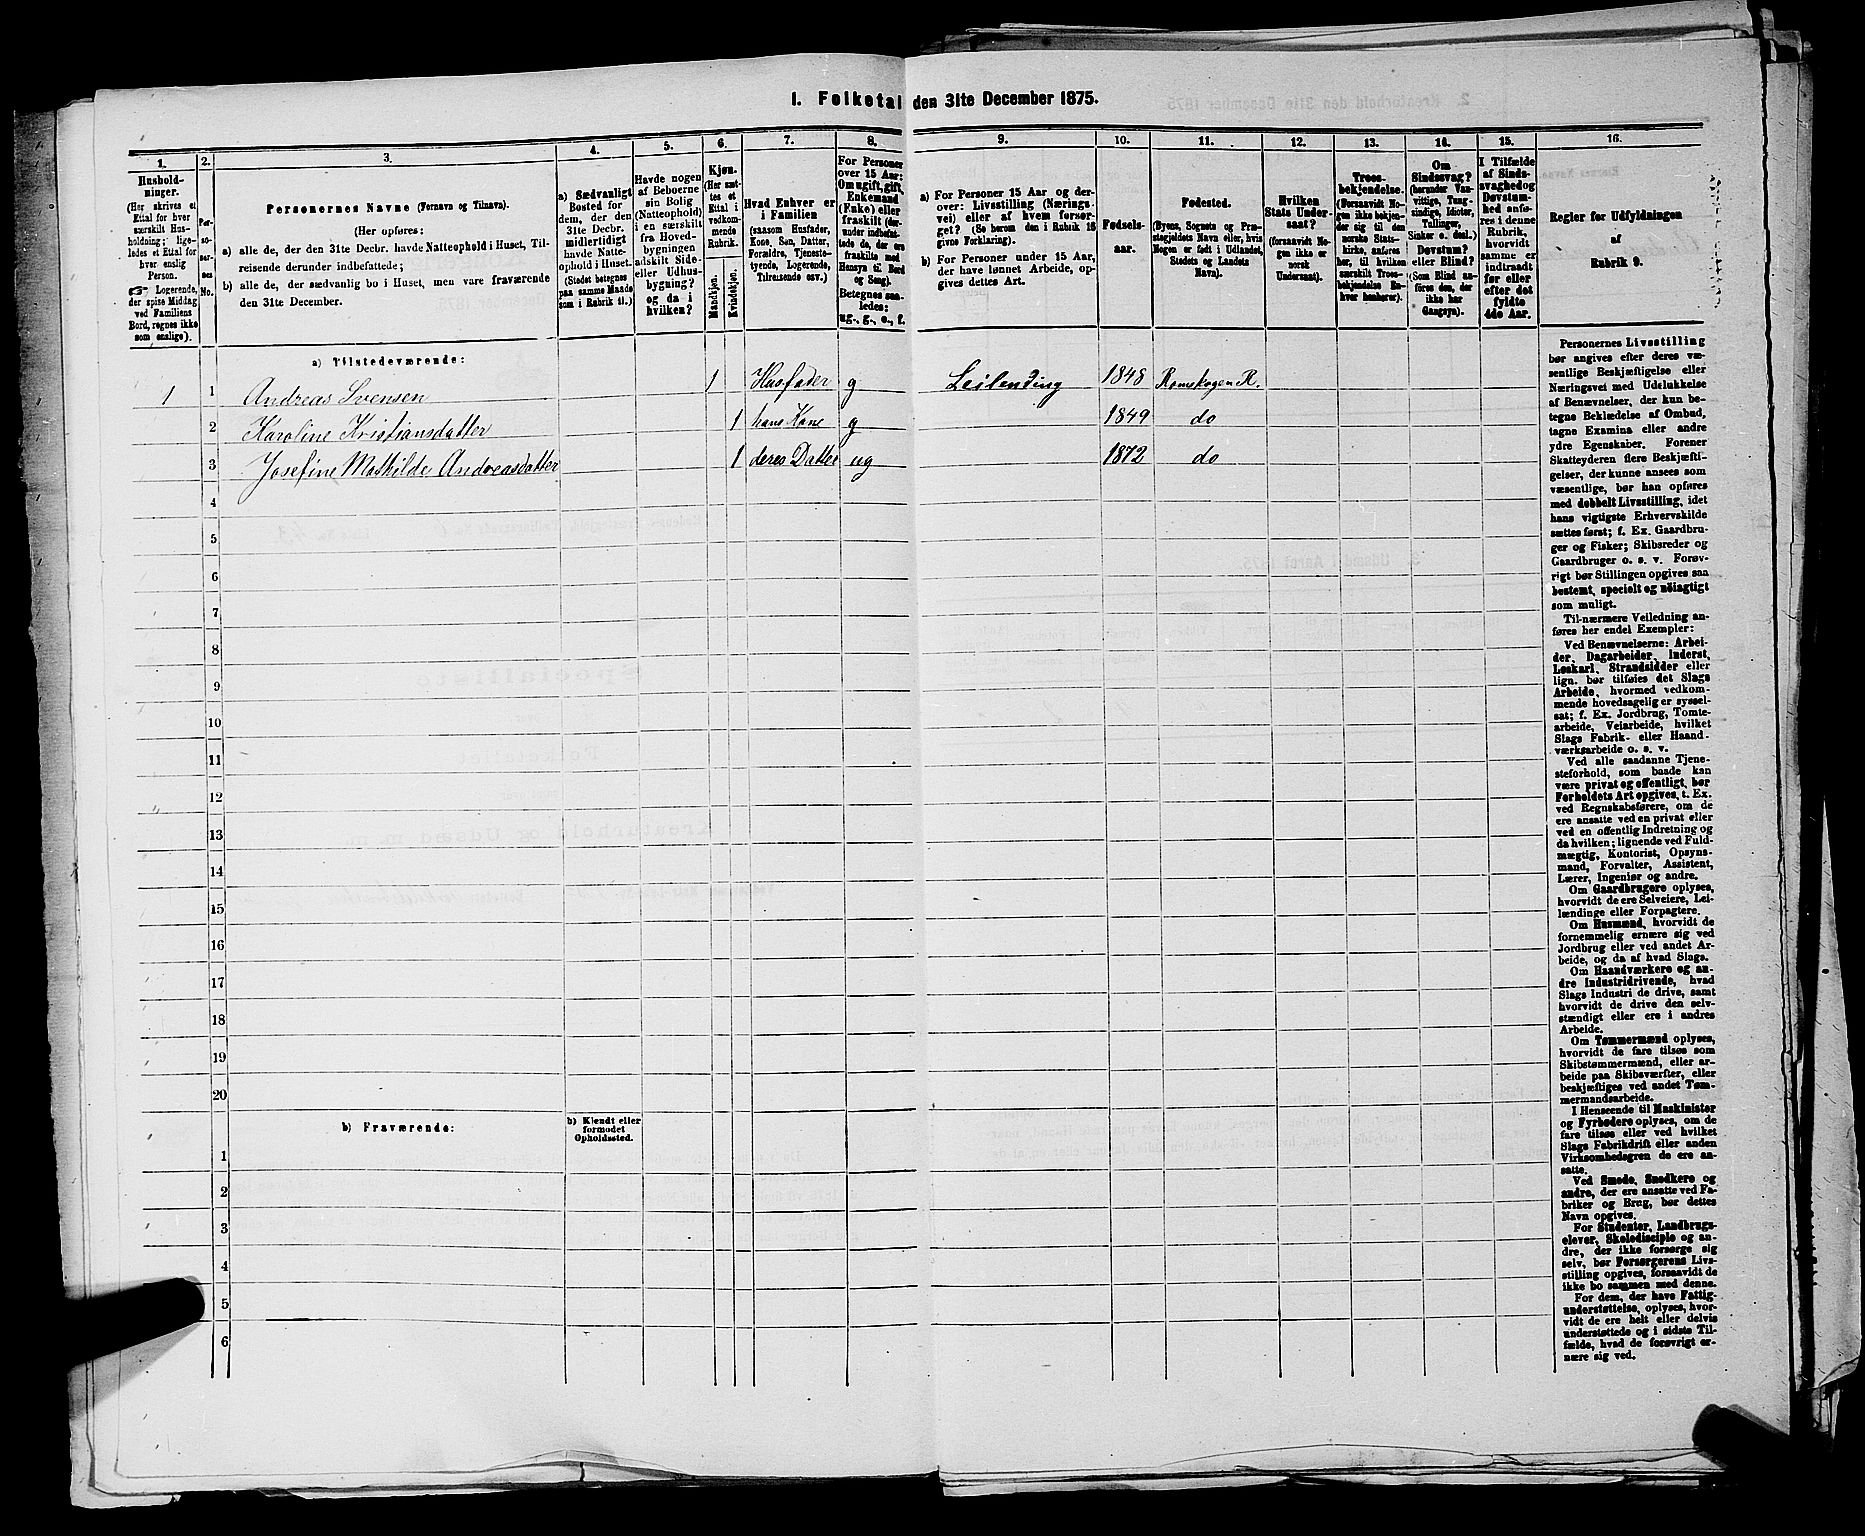 1. Folketal den 31te December 1875.
1. 2. 3. 4. 5. 6. 7. 8. 9. 10. 11. 12. 13. 14. 15. 16.
Hushold-
ninger.
(Her skrives et
Ettal for hver
særskilt Hus-
holdning; lige-
ledes et Ettal
for hver
enslig
Person.
☞ Logerende,
der spise Middag
ved Familiens
Bord, regnes ikke
som enslige).
Per-
so-
ner-
nes
No.
Personernes Navne (Fornavn og Tilnavn).
(Her opføres:
a) alle de, der den 31te Decbr. havde Natteophold i Huset, Til-
reisende derunder indbefattede;
b) alle de, der sædvanlig bo i Huset, men vare fraværende
den 31te December.
a) Sædvanligt
Bosted for
dem, der den
31te Decbr.
midlertidigt
havde Natte-
ophold i Huset.
(Stedet betegnes
paa samme Maade
som i Rubrik 11.)
Havde nogen
af Beboerne
sin Bolig
(Natteophold)
i en særskilt
fra Hoved-
bygningen
adskilt Side-
eller Udhus-
bygning?
og da i
hvilken?
Kjøn.
(Her sæt-
tes et
Ettal i
vedkom-
mende
Rubrik.
Mandkjøn.
Kvindekjøn.
Hvad Enhver er
i Familien
(saasom Husfader,
Kone, Søn, Datter,
Forældre, Tjeneste-
tyende, Logerende,
Tilreisende osv.)
For Personer
over 15 Aar:
Om ugift, gift,
Enkemand
(Enke) eller
fraskilt (der-
under indbefat-
tede de, der ere
fraskilte med
Hensyn til Bord
og Seng).
Betegnes saa-
ledes:
ug., g., e., f.
a) For Personer 15 Aar og der-
over: Livsstilling (Nærings-
vei) eller af hvem forsør-
get? (Se herom den i Rubrik 16
givne Forklaring).
b) For Personer under 15 Aar,
der have lønnet Arbeide, op-
gives dettes Art.
Fødsels-
aar.
Fødested.
(Byens, Sognets og Præ-
stegjeldets Navn eller, hvis
Nogen er født i Udlandet,
Stedets og Landets
Navn).
Hvilken
Stats Under-
saat?
(forsaavidt No-
gen ikke er
norsk
Undersaat).
Troes-
bekjendelse.
(Forsaavidt No-
gen ikke bekjen-
der sig til den
norske Stats-
kirke, anføres
her, til hvilken
særskilt Troes-
bekjendelse En-
hver henhører).
Om
Sindssvag?
(herunder Van-
vittige, Tung-
sindige, Idioter,
Tullinger,
Sinker o. desl.)
Døvstum?
eller Blind?
(Som Blind an-
føres den, der
ikke har
Gangsyn).
I Tilfælde
af Sinds-
svaghed og
Døvstum-
hed anfø-
res i denne
Rubrik,
hvorvidt
samme er
indtraadt
før eller
efter det
fyldte
4de Aar.
Regler for Udfyldningen
af
Rubrik 9.
a) Tilstedeværende:
1 1 Andreas Svensen 1 Husfader g Leilending 1848 Romskogen R.
2 Karoline Kristiansdatter 1 hans Kone g 1849 do
3 Josefine Mathilde Andreasdatter 1 deres Datter ug 1872 do
4
5
6
7
8
9
10
11
12
13
14
15
16
17
18
19
20
b) Fraværende:
b) Kjendt eller
formodet
Opholdssted.
1
2
3
4
5
6
Personernes Livsstilling
bør angives efter deres væ-
sentlige Beskjæftigelse eller
Næringsvei med Udelukkelse
af Benævnelser, der kun be-
tegne Beklædelse af Ombud,
tagne Examina eller andre
ydre Egenskaber. Forener
Skatteyderen flere Beskjæfti-
gelser, der kunne ansees som
væsentlige, bør han opføres
med dobbelt Livsstilling, idet
hans vigtigste Erhvervskilde
sættes først; f. Ex. Gaardbru-
ger og Fisker; Skibsreder og
Gaardbruger o. s. v. Forøv-
rigt bør Stillingen opgives saa
bestemt, specielt og nøiagtigt
som muligt.
Til nærmere Veiledning an-
føres her endel Exempler:
Ved Benævnelserne: Arbei-
der, Dagarbeider, Inderst,
Løskarl, Strandsidder eller
lign. bør tilføies det Slags
Arbeide, hvormed vedkom-
mende hovedsagelig er syssel-
sat; f. Ex. Jordbrug, Tomte-
arbeide, Veiarbeide, hvilket
Slags Fabrik- eller Haand-
værksarbeide o. s. v.
Ved alle saadanne Tjene-
steforhold, som baade kan
være privat og offentligt, bør
Forholdets Art opgives, t. Ex.
ved Regnskabsførere, om de
ere ansatte ved en privat eller
ved en offentlig Indretning og
da hvilken; lignende ved Fuld-
mægtig, Kontorist, Opsyns-
mand, Forvalter, Assistent,
Lærer, Ingeniør og andre.
Om Gaardbrugere oplyses,
hvorvidt de ere Selveiere, Lei-
lændinge eller Forpagtere.
Om Husmænd, hvorvidt de
fornemmelig ernære sig ved
Jordbrug eller ved andet Ar-
beide, og da af hvad Slags.
Om Haandværkere og an-
dre Industridrivende, hvad
Slags Industri de drive, samt
hvorvidt de drive den selv-
stændigt eller ere i andres
Arbeide.
Om Tømmermænd oplyses,
hvorvidt de fare tilsøs som
Skibstømmermænd, eller ar-
beide paa Skibsværfter, eller
beskjæftiges ved andet Tøm-
mermandsarbeide.
I Henseende til Maskinister
og Fyrbødere oplyses, om de
fare tilsøs eller ved hvilket
Slags Fabrikdrift eller anden
Virksomhedsgren de ere an-
satte.
Ved Smede, Snedkere og
andre, der ere ansatte ved Fa-
briker og Brug, bør dettes
Navn opgives.
For Studenter, Landbrugs-
elever, Skoledisciple og an-
dre, der ikke forsørge sig
selv, bør Forsørgerens Livs-
stilling opgives, forsaavidt de
ikke bo sammen med denne.
For dem, der have Fattig-
understøttelse, oplyses, hvor-
vidt de ere helt eller delvis
understøttede og i sidste Til-
fælde, hvad de forøvrigt er-
nære sig ved.